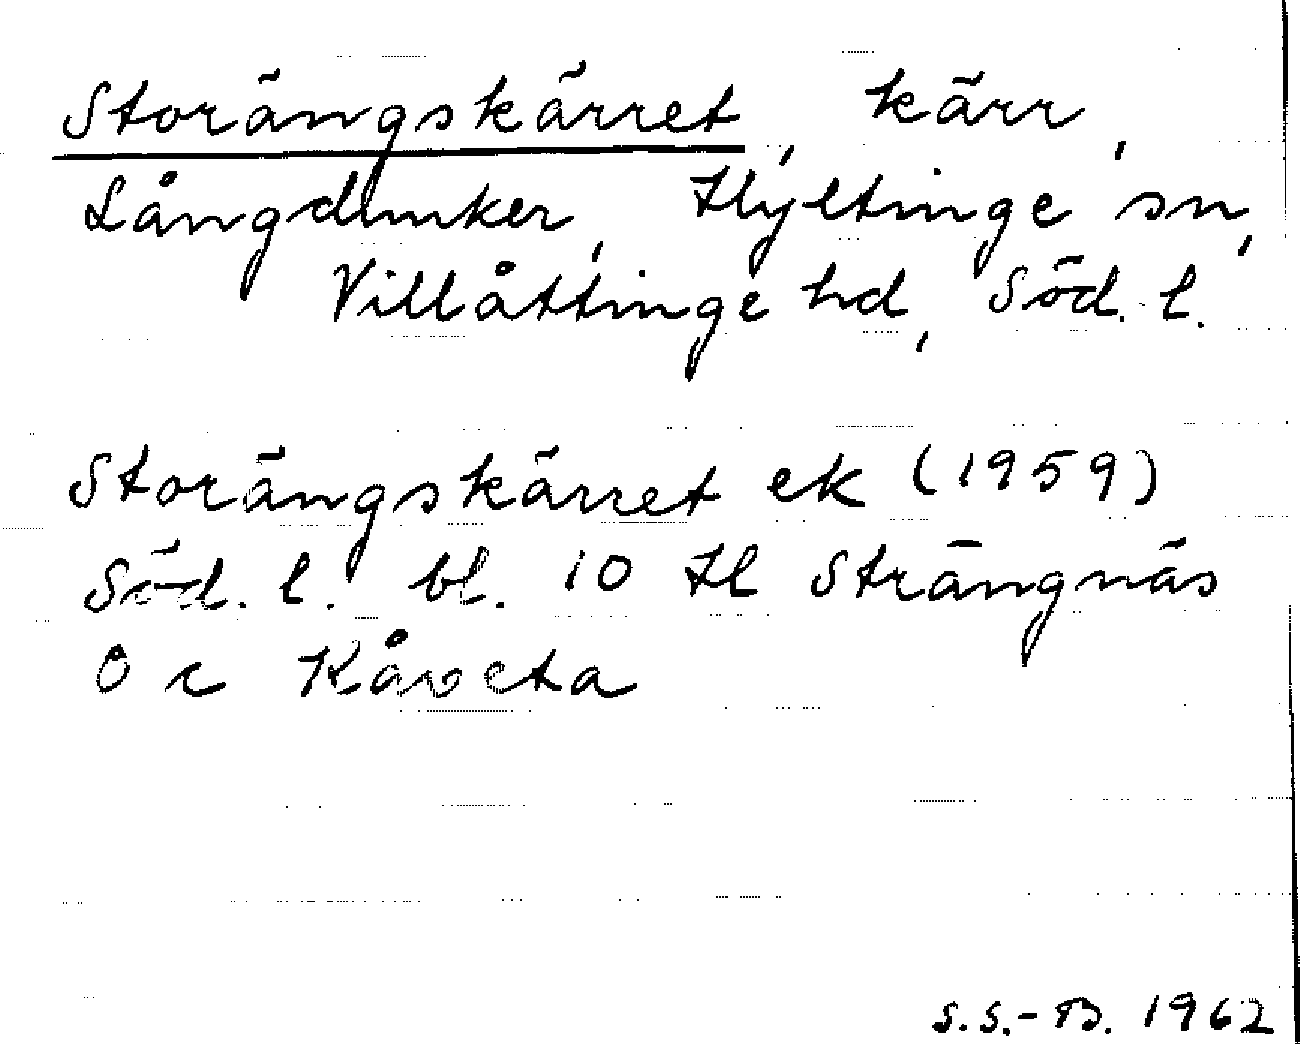 Storängskärret, kärr,
Långdunker, Hyltinge sn,
Villåttinge hd, Söd. l.
Storängskärret ek (1959)
Söd. l. bl. 10 H Strängnäs
Ö c Kåveta
S.S.-B. 1962